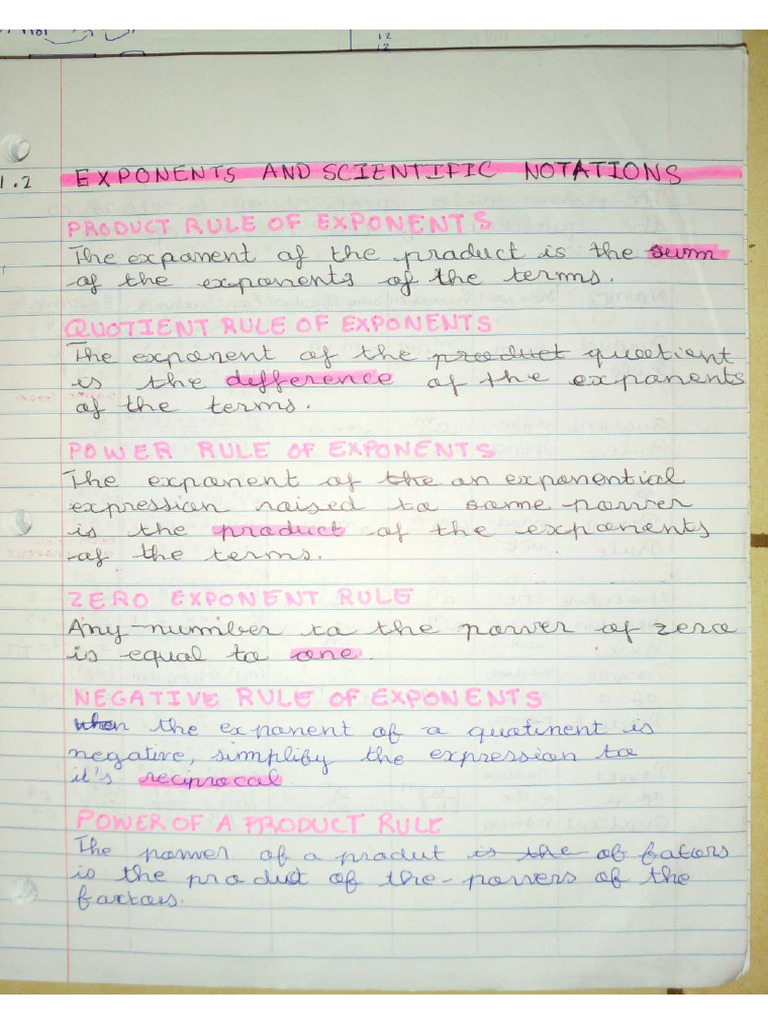 12
12
1.2 EXPONENTS AND SCIENTIFIC NOTATIONS
PRODUCT RULE OF EXPONENTS
The exponent of the product is the sum
of the exponents of the terms.
QUOTIENT RULE OF EXPONENTS
The exponent of the product quotient
is the difference of the exponents
of the terms.
POWER RULE OF EXPONENTS
The exponent of the an exponential
expression raised to some power
is the product of the exponents
of the terms.
ZERO EXPONENT RULE
Any number to the power of zero
is equal to one.
NEGATIVE RULE OF EXPONENTS
when the exponent of a quotinent is
negative, simplify the expression to
it's reciprocal.
POWER OF A PRODUCT RULE
The power of a produt is the of fators
is the product of the powers of the
factors.